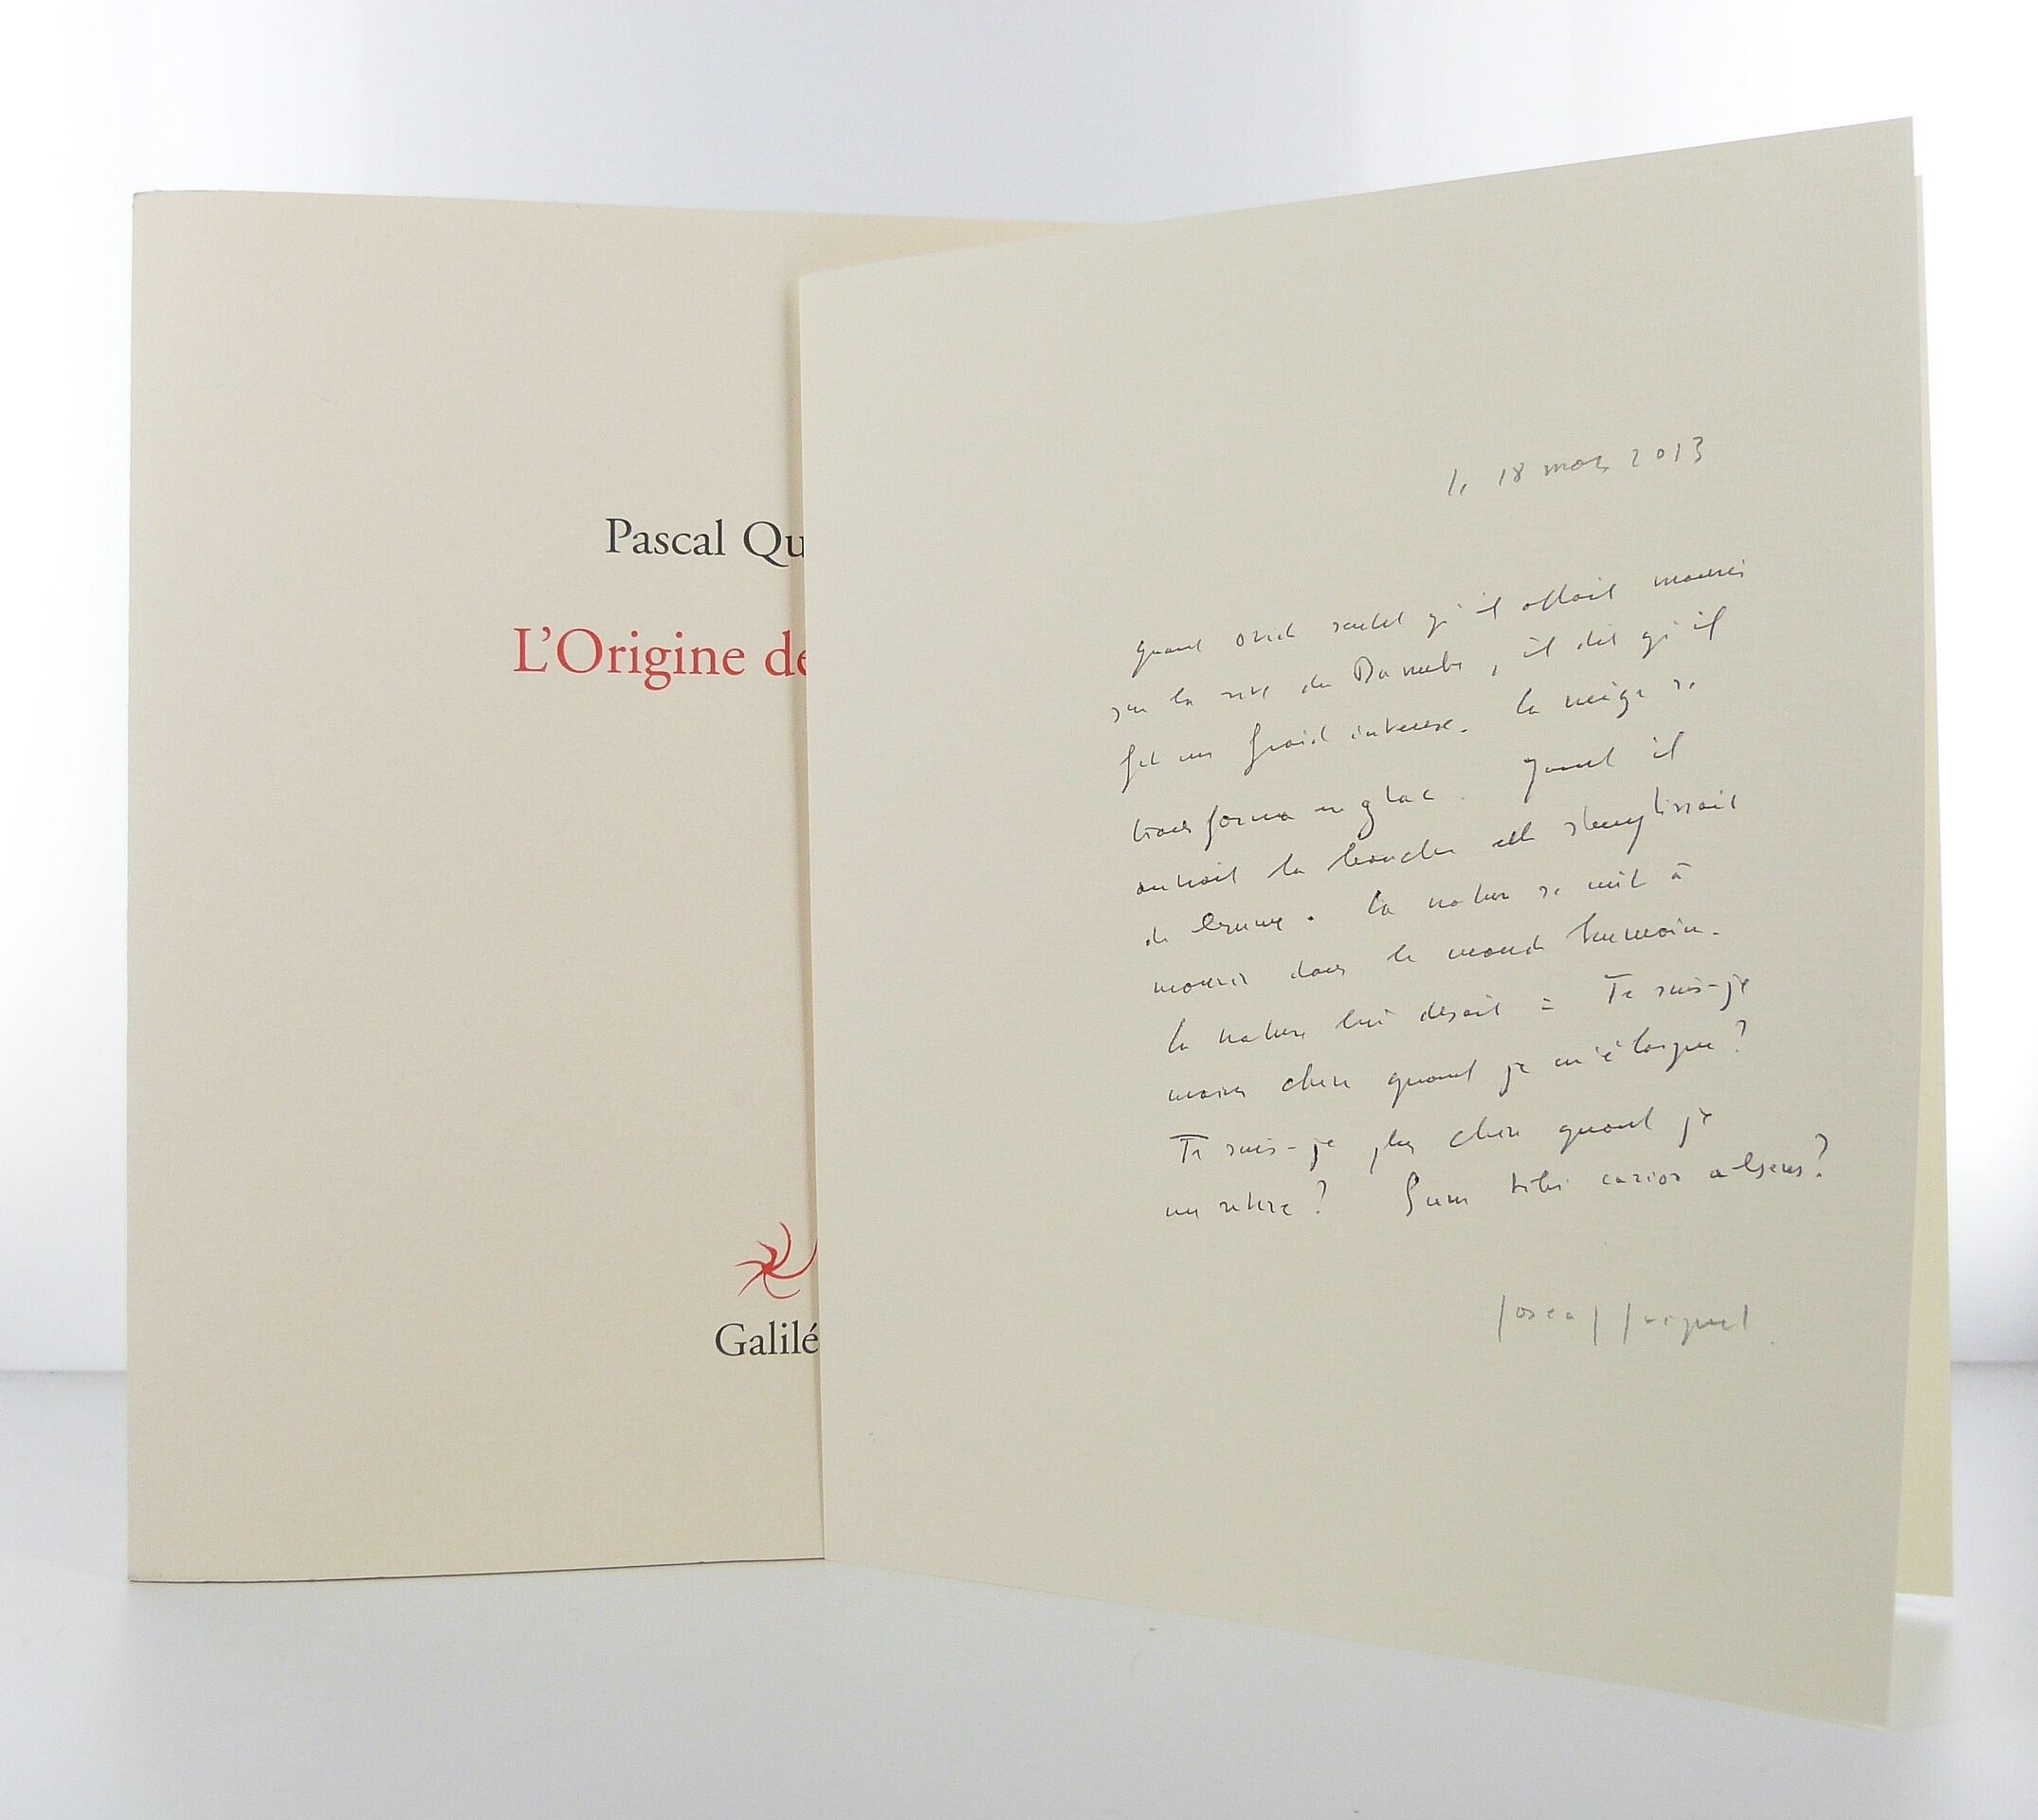 Pascal Qu
L'Origine de
Galilé
le 18 mars 2013
quand Ovide sentit qu'il allait mourir
sur la rive du Danube, il dit qu'il
fit un froid intense. la neige se
transforma en glace. quand il
ouvrait la bouche elle s'emplissait
de brume. la nature se mit à
mourir dans le monde humain.
la nature lui disait : Te suis-je
moins chère quand je m'éloigne ?
Te suis-je plus chère quand je
me retire ? Sum tibi carior absens ?
Pascal Quignard